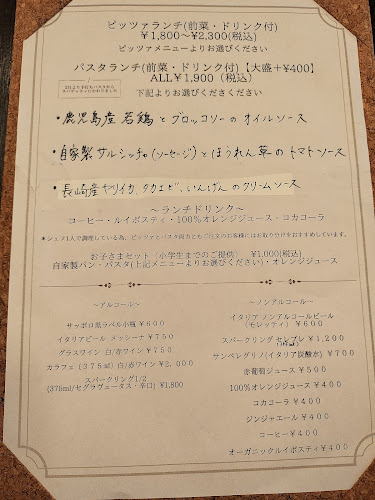 ピッツァランチ(前菜・ドリンク付)
￥1,800～￥2,300(税込)
ピッツァメニューよりお選びください
パスタランチ(前菜・ドリンク付)【大盛+¥400】
ALL￥1,900（税込）
下記よりお選びくださください
・鹿児島産 若鶏とブロッコリーのオイルソース
・自家製サルシッチャ(ソーセージ)とほうれん草のトマトソース
・長崎産ヤリイカ、タカエビ、いんげんのクリームソース
～ランチドリンク～
コーヒー・ルイボスティ・100%オレンジジュース・コカコーラ
*シェフ1人で調理している為、ピッツァとパスタ両方ともご注文のお客様にはお取り分けをおすすめしています。
お子さまセット（小学生までのご提供） ￥1,000(税込)
自家製パン・パスタ(上記メニューよりお選びください)・オレンジジュース
～アルコール～
サッポロ黒ラベル小瓶 ￥600
イタリアビール メッシーナ ￥750
グラスワイン 白/赤ワイン ￥750
カラフェ（375ml）白/赤ワイン ￥2,000
スパークリング1/2
(375ml/セグラヴュータス・辛口) ¥1,800
～ノンアルコール～
イタリア ノンアルコールビール
（モレッティ） ￥600
スパークリング センブレ ￥1,200
サンペレグリノ(イタリア炭酸水) ￥700
赤葡萄ジュース ￥500
100%オレンジジュース ￥400
コカコーラ ￥400
ジンジャエール ￥400
コーヒー ￥400
オーガニックルイボスティ ￥400